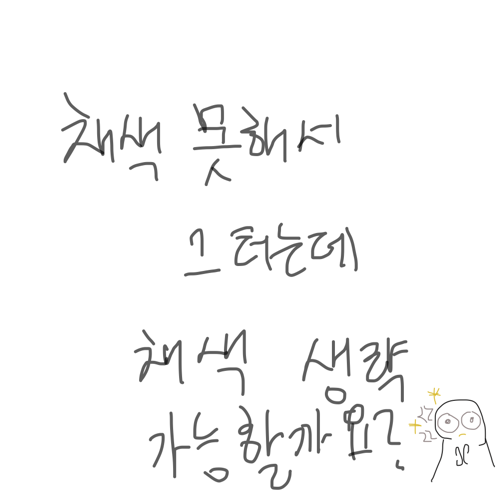 채색 못해서
그러는데
채색 생략
가능할까요?